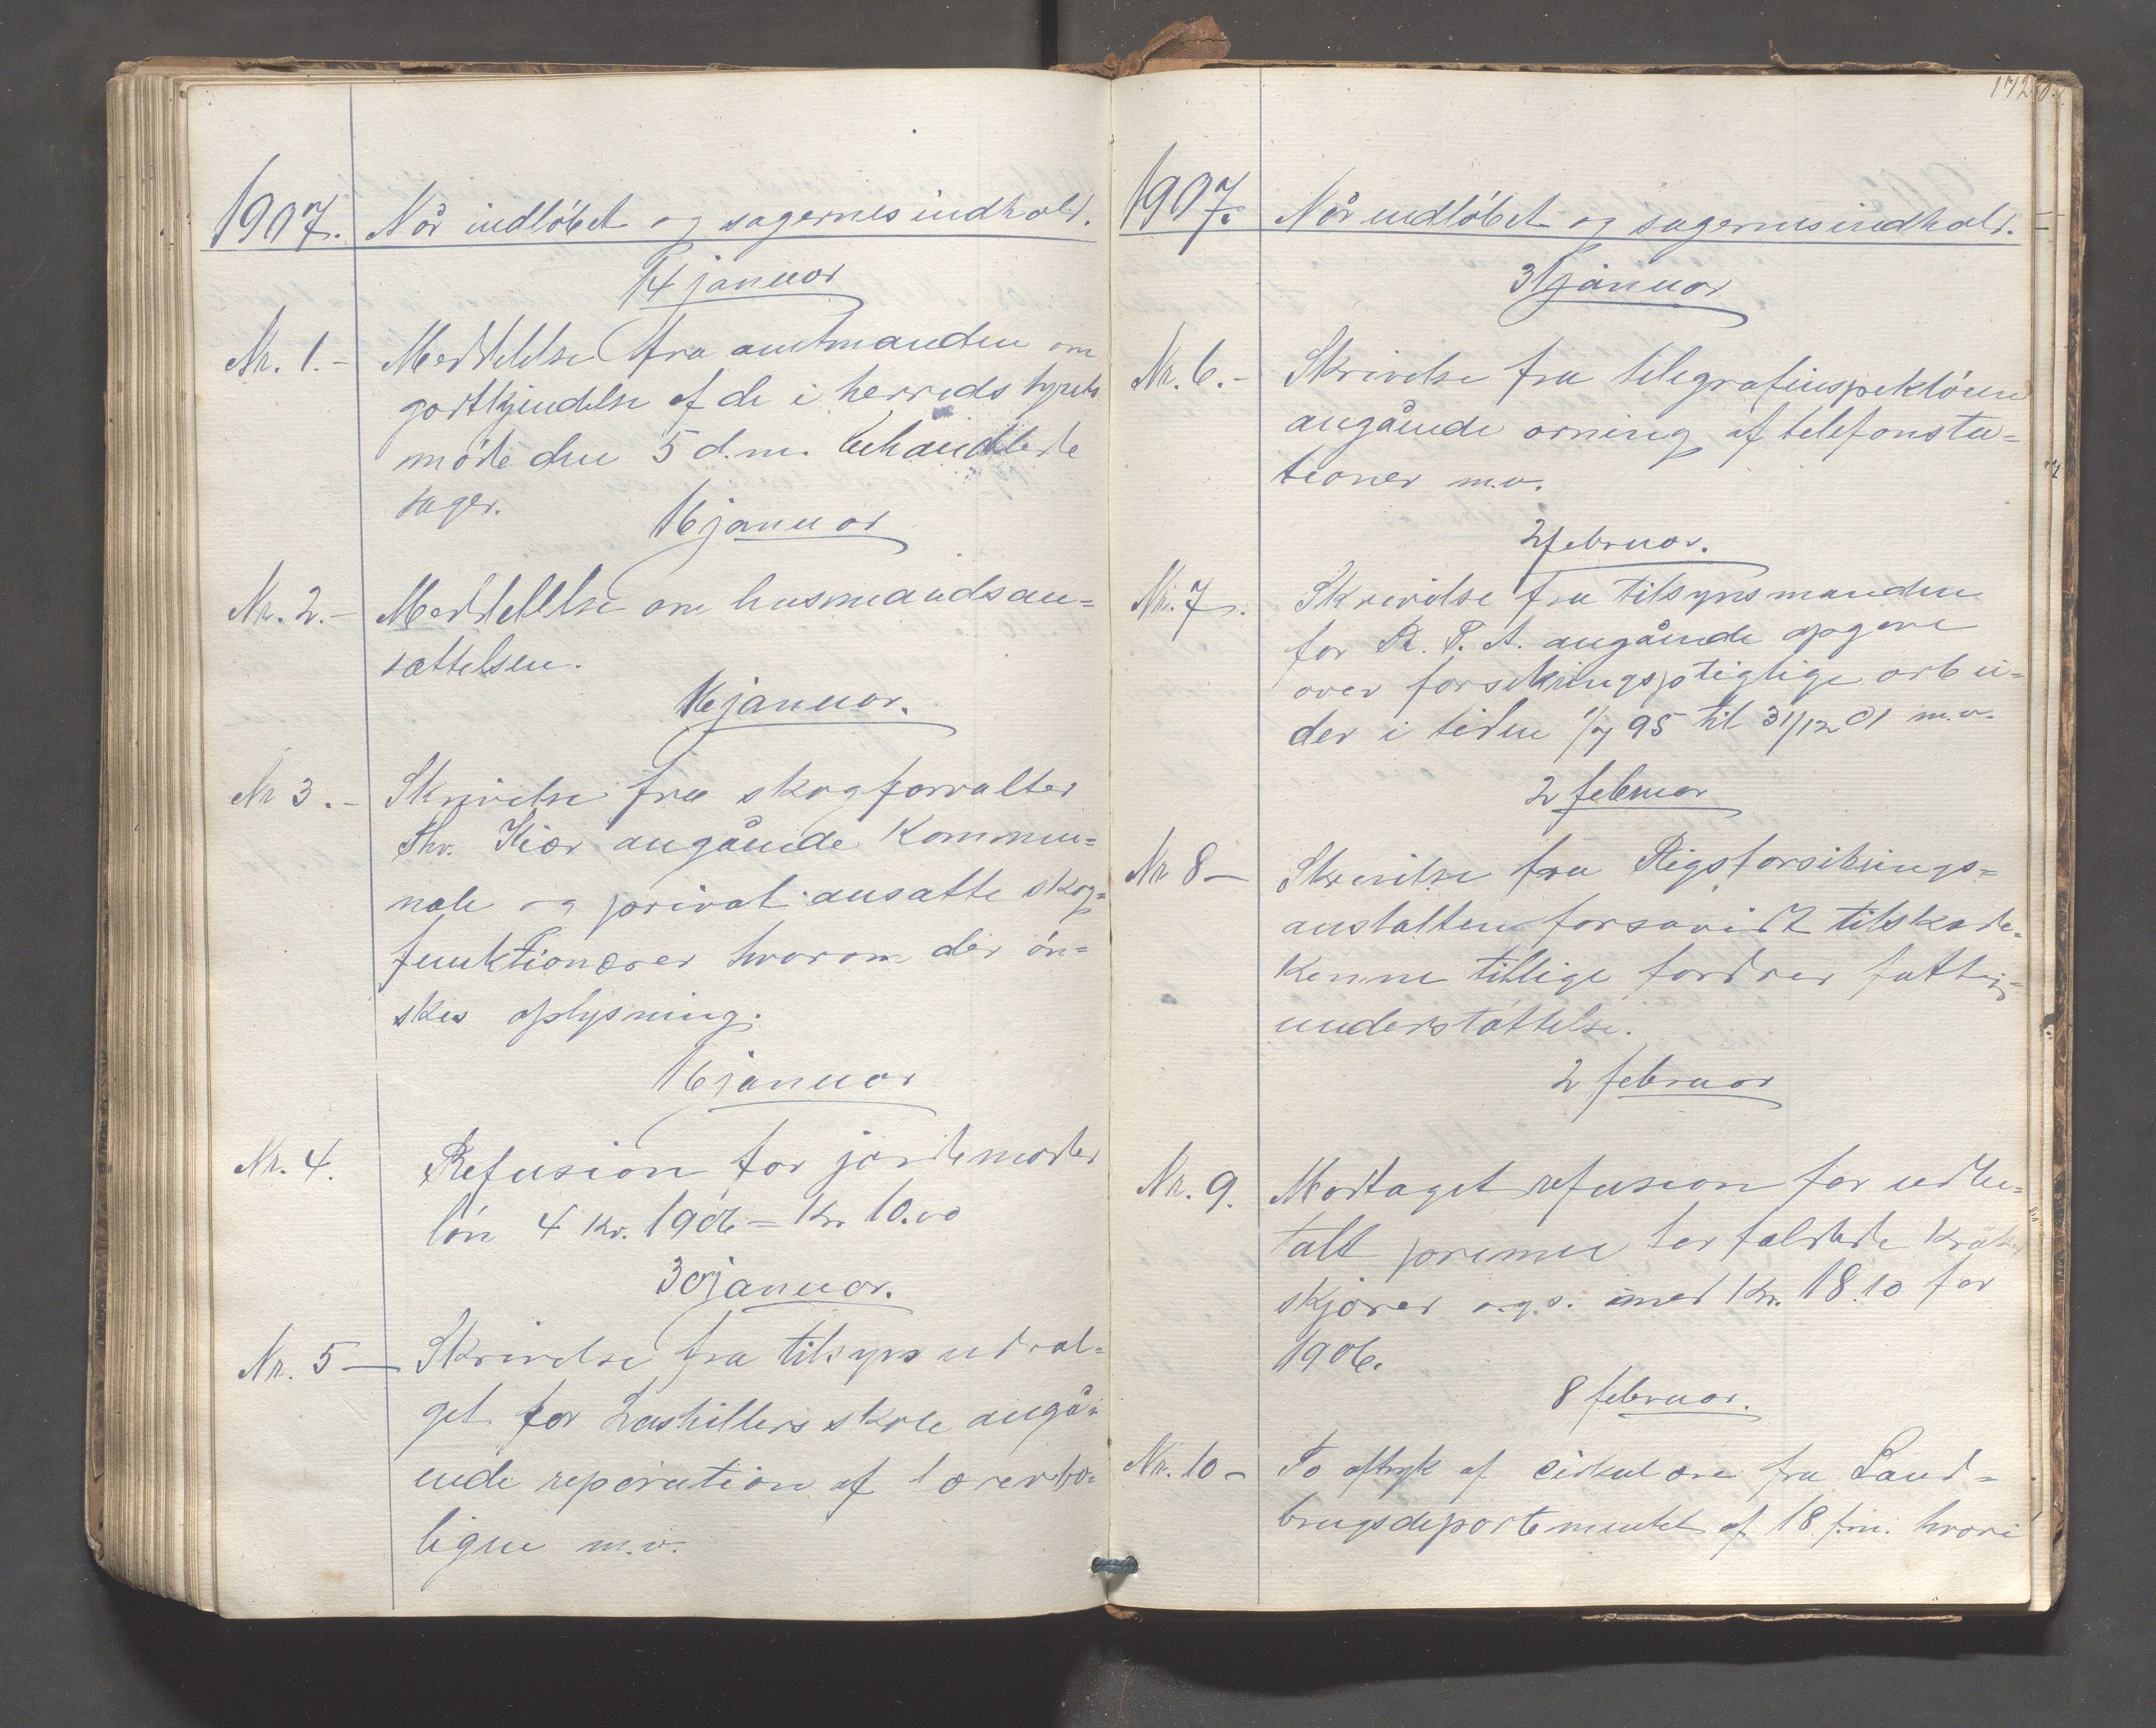 1907. Når indløbet og sagernes indhold.
14 januar
Nr. 1.- Meddelelse fra amtmanden om
godtkjendelse af de i herreds styrets
møde den 5 d.m. behandlede
sager.
16 januar
Nr. 2.- Meddelelse om husmandsan=
sættelsen.
16 januar.
Nr 3.- Skrivelse fra skogforvalter
Thv. Kiær angående kommu=
nale og privat ansatte skog=
funktionærer hvorom der øn=
skes oplysning.
16 januar
Nr. 4. Refusion for jordemoder
løn 4 kv. 1906 = Kr. 10.00
30 januar.
Nr. 5 — Skrivelse fra tilsynsudval=
get for skole angå=
ende reperation af lærerbo=
ligen m.v.
172
1907. Når indløbet og sagernes indhold.
31 januar
Nr. 6.- Skrivelse fra telegrafinspektøren
angående orning af telefonsta=
tioner m.v.
2 februar.
Nr. 7. Skrivelse fra tilsynsmanden
for R. F. A. angående opgave
over forsikringspligtige arbei=
der i tiden 1/7 95 til 31/12 01 m.v.
2 februar
Nr 8 — Skrivelse fra Rigsforsikrings=
anstalten forsavidt tilskade=
komne tillige fordrer fattig=
understøttelse.
2 februar
Nr. 9. Modtaget refusion for udbe=
talt premie for fældede kråker
skjorer o.g.s. med Kr. 18.10 for
1906.
8 februar.
Nr. 10 - To aftryk af cirkulære fra Land=
brugsdepartementet af 18 f.m. hvori